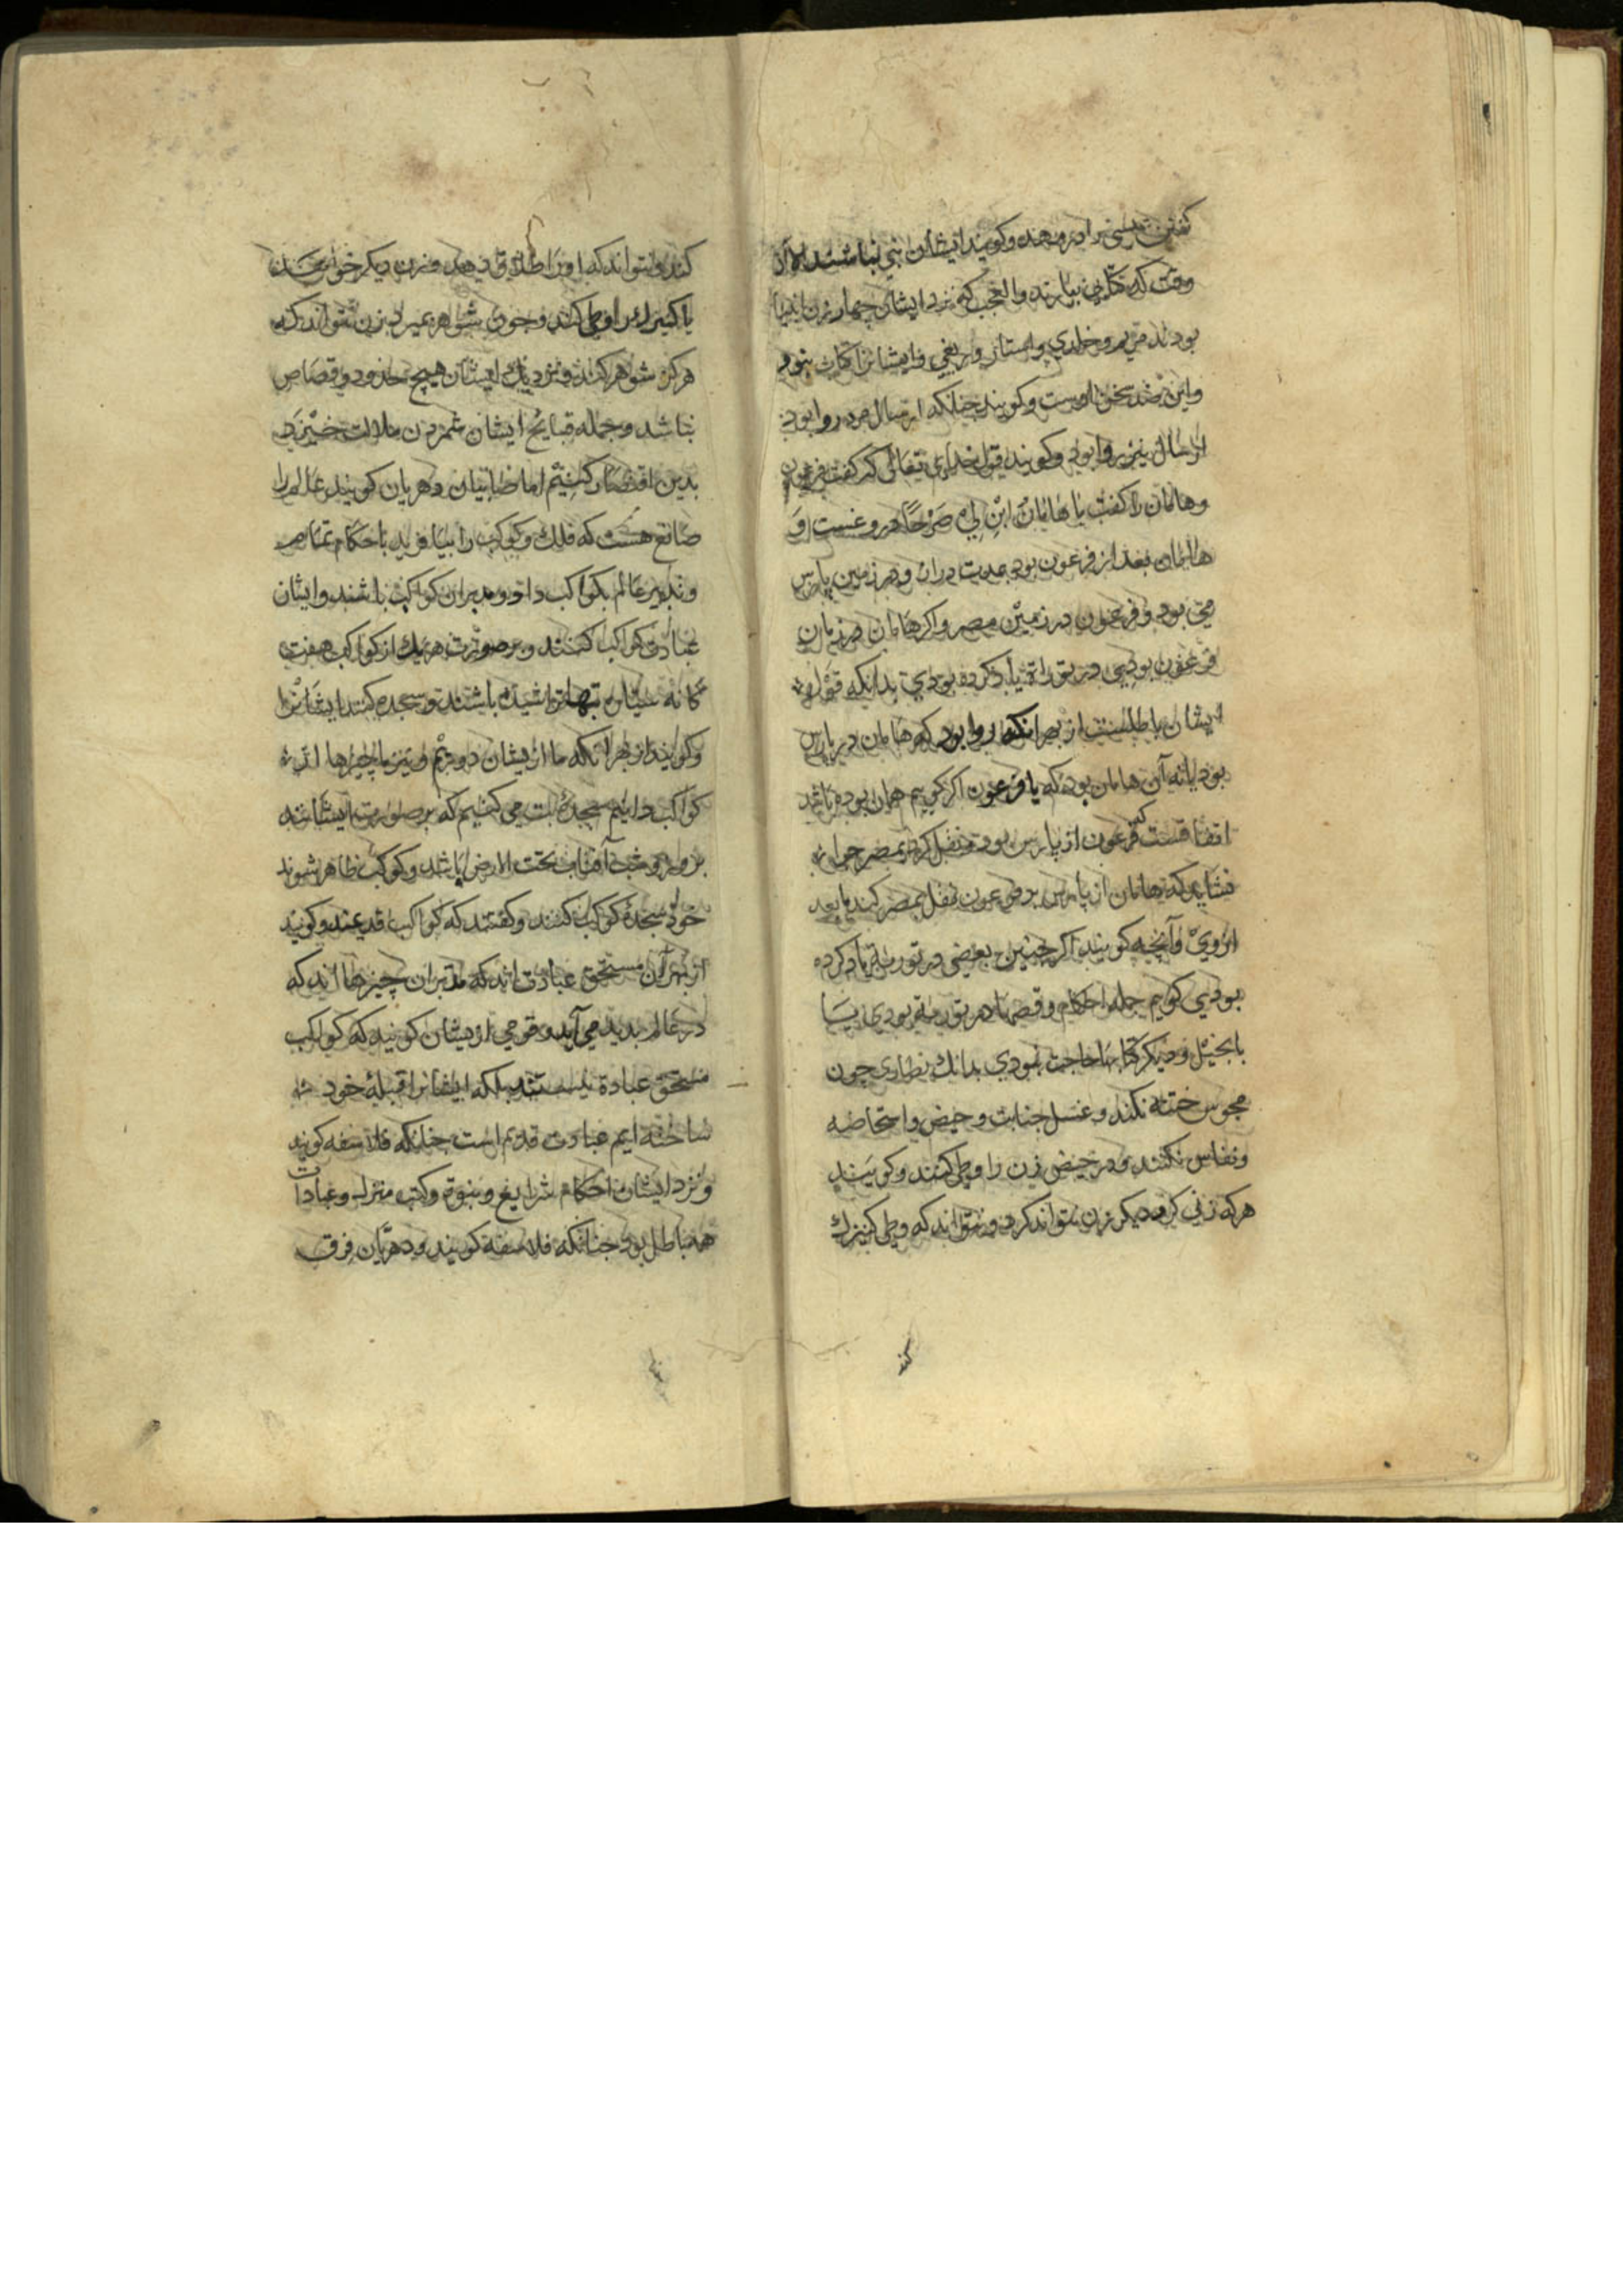 گفتن عیسی را در مهد و کویند ایشان نبی نباشند الا آن
وقت که کتابی بیارند والعجب که نزد ایشان چهار زن انبیا
بودند مریم و خلدی واستار وربقی وایشانرا کتاب نبود
واین ضد سخن اوست وکویند جنانکه ارسال مرد روا بود
ارسال زن نیز روا بود وکویند قول خدای تعالی که کفت فرعون
وهامان را کفت یا هامان ابن لی صرحا دروغست و
هامان بعد از فرعون بود بمدت دراز ودر زمین پارس
می بود وفرعون در زمین مصر واکر هامان در زمان
فرعون بودی در توراة یاد کرده بودی بدانکه قول
ایشان باطلست از بهر انکه روا بود که هامان در پارس
بود یا نه آن هامان بود که با فرعون اکر کویم همان بوده باشد
اتفاقست که فرعون از پارس بود ونقل کرد بمصر جرا
نشاید که هامان از پارس بود وفرعون نقل بمصر کند یا بعد
از وی وآنچه کویند اکر چنین بعضی در توریة یاد کرده
بودی کویم جمله احکام وقصها در توریة بودی پسا
بانجیل ودیکر کتابها حاجت نبودی بدانک نصاری چون
مجوس ختنه نکند وغسل جنابت وحیض واستحاضه
ونفاس نکنند ودر حیض زن را وطی کنند وکویند
هر که زنی کرد دیکر زن نتواند کرد ونتواند که وطی کنیزک
کند
کند ونتواند که او را طلاق دهد وزن دیکر خواهد
یا کنیزک را وطی کند وچون شوهر بمیرد زن نتواند که
هرکز شوهر کند ونزدیک ایشان هیچ حدود وقصاص
نباشد وجمله قبایح ایشان شمردن ملالت خیزد
بدین اقتصار کنیم اما صابیان ودهریان کویند عالم را
صانع هست که فلک وکواکب را بیافرید باحکام تمام
وتدبیر عالم بکواکب داد ومدبران کواکب باشند وایشان
عبادت کواکب کنند وبر صورت هر یک از کواکب هفت
کانه بتها تراشیده باشند وسجده کنند ایشانرا
وکویند از بهر آنکه ما از یشان دوریم ونیز ما چیزها اثر
کواکب دانیم سجده بت می کنیم که بر صورت ایشانند
بروز وشب آفتاب تحت الارض باشد وکوکب ظاهر شوند
خود سجده کواکب کنند وکفتند که کواکب قدیمند وکویند
از بهر آن مستحق عبادت اند که مدبران چیزها اند که
در عالم بدید می آید وقومی از یشان کویند که کواکب
مستحق عبادة نیستند بلکه ایشانرا قبلهٔ خود
ساخته ایم عبادت قدیم است جنانکه فلاسفه کویند
ونزد ایشان احکام شرایع ونبوة وکتب منزل وعبادات
همه باطل بود جنانکه فلاسفه کویند ودهریان فرق